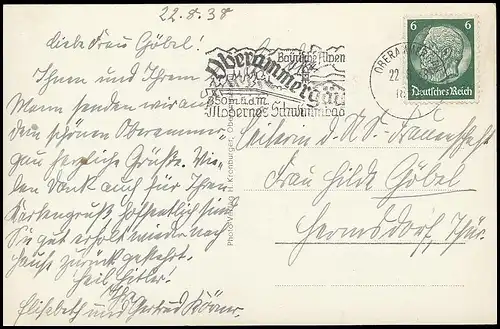 22.8.38
Liebe Frau Göbel!
Ihnen und Ihrem
Mann senden wir aus
dem schönen Oberammer-
gau herzliche Grüße. Vie-
len Dank auch für Ihren
Kartengruß, hoffentlich sind
Sie gut erholt wieder nach
Hause zurück gekehrt.
Heil Hitler!
Elisabeth und Gertrud Körner
Bayrische Alpen
Oberammergau
850 m ü. d. M.
Modernes Schwimmbad
OBERAMMERGAU
22.
6 6
Deutsches Reich
Photo-Verlag H. Kronburger,
Leiterin d. N.S.-Frauenschaft
Frau Hilde Göbel
Hermsdorf, Thür.